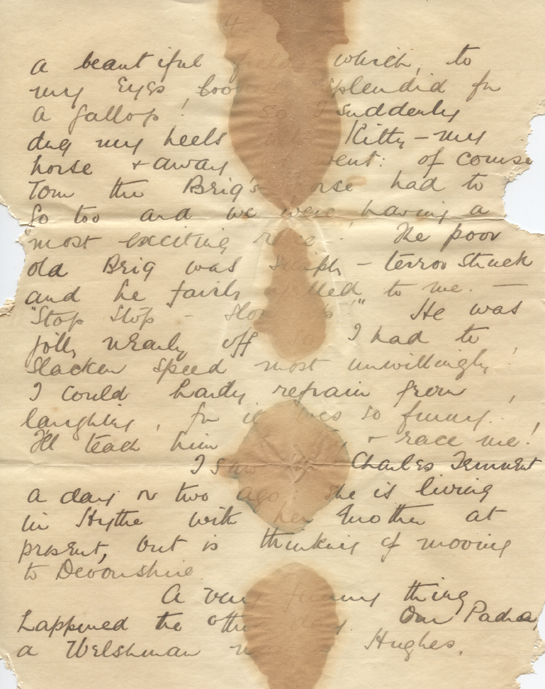 4
a beautiful which, to
my Eyes, splendid for
a gallop! so I suddenly
dug my heels Kitty - my
horse & away went: of course
Tom the Brig's horse had to
go too and we were having a
most exciting race. The poor
old Brig was - terror struck
and he fairly yelled to me. -
"Stop Stop - " He was
jolly nearly off so I had to
slacken speed most unwillingly!
I could hardly refrain from
laughing, for it was so funny!
I'll teach him & race me!
I saw Charles Tennent
a day or two ago. She is living
in Hythe with her Mother at
present, but is thinking of moving
to Devonshire
A very funny thing
happened the other day. Our Padre,
a Welshman Hughes,